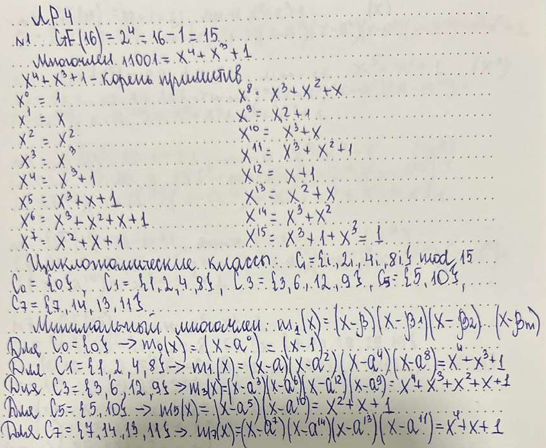 ЛР4
№1 GF(16) = 2⁴ = 16 - 1 = 15
Многочлен 11001 = x⁴ + x³ + 1
x⁴ + x³ + 1 - корень примитив
x⁰ = 1
x¹ = x
x² = x²
x³ = x³
x⁴ = x³ + 1
x⁵ = x³ + x + 1
x⁶ = x³ + x² + x + 1
x⁷ = x² + x + 1
x⁸ = x³ + x² + x
x⁹ = x² + 1
x¹⁰ = x³ + x
x¹¹ = x³ + x² + 1
x¹² = x + 1
x¹³ = x² + x
x¹⁴ = x³ + x²
x¹⁵ = x³ + 1 + x³ = 1
Циклотомические классы: Ci = {i, 2i, 4i, 8i} mod 15
C₀ = {0}, C₁ = {1, 2, 4, 8}, C₃ = {3, 6, 12, 9}, C₅ = {5, 10},
C₇ = {7, 14, 13, 11}.
Минимальный многочлен: m₁(x) = (x-β)(x-β₁)(x-β₂)...(x-βm)
Для C₀ = {0} → m₀(x) = (x-a⁰) = (x-1)
Для C₁ = {1, 2, 4, 8} → m₁(x) = (x-a)(x-a²)(x-a⁴)(x-a⁸) = x⁴ + x³ + 1
Для C₃ = {3, 6, 12, 9} → m₃(x) = (x-a³)(x-a⁶)(x-a¹²)(x-a⁹) = x⁴ + x³ + x² + x + 1
Для C₅ = {5, 10} → m₅(x) = (x-a⁵)(x-a¹⁰) = x² + x + 1
Для C₇ = {7, 14, 13, 11} → m₇(x) = (x-a⁷)(x-a¹⁴)(x-a¹³)(x-a¹¹) = x⁴ + x + 1